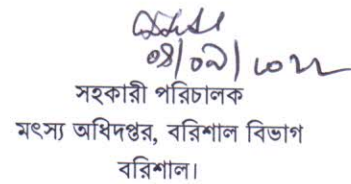 ০৪/০৯/২০২২
সহকারী পরিচালক
মৎস্য অধিদপ্তর, বরিশাল বিভাগ
বরিশাল।